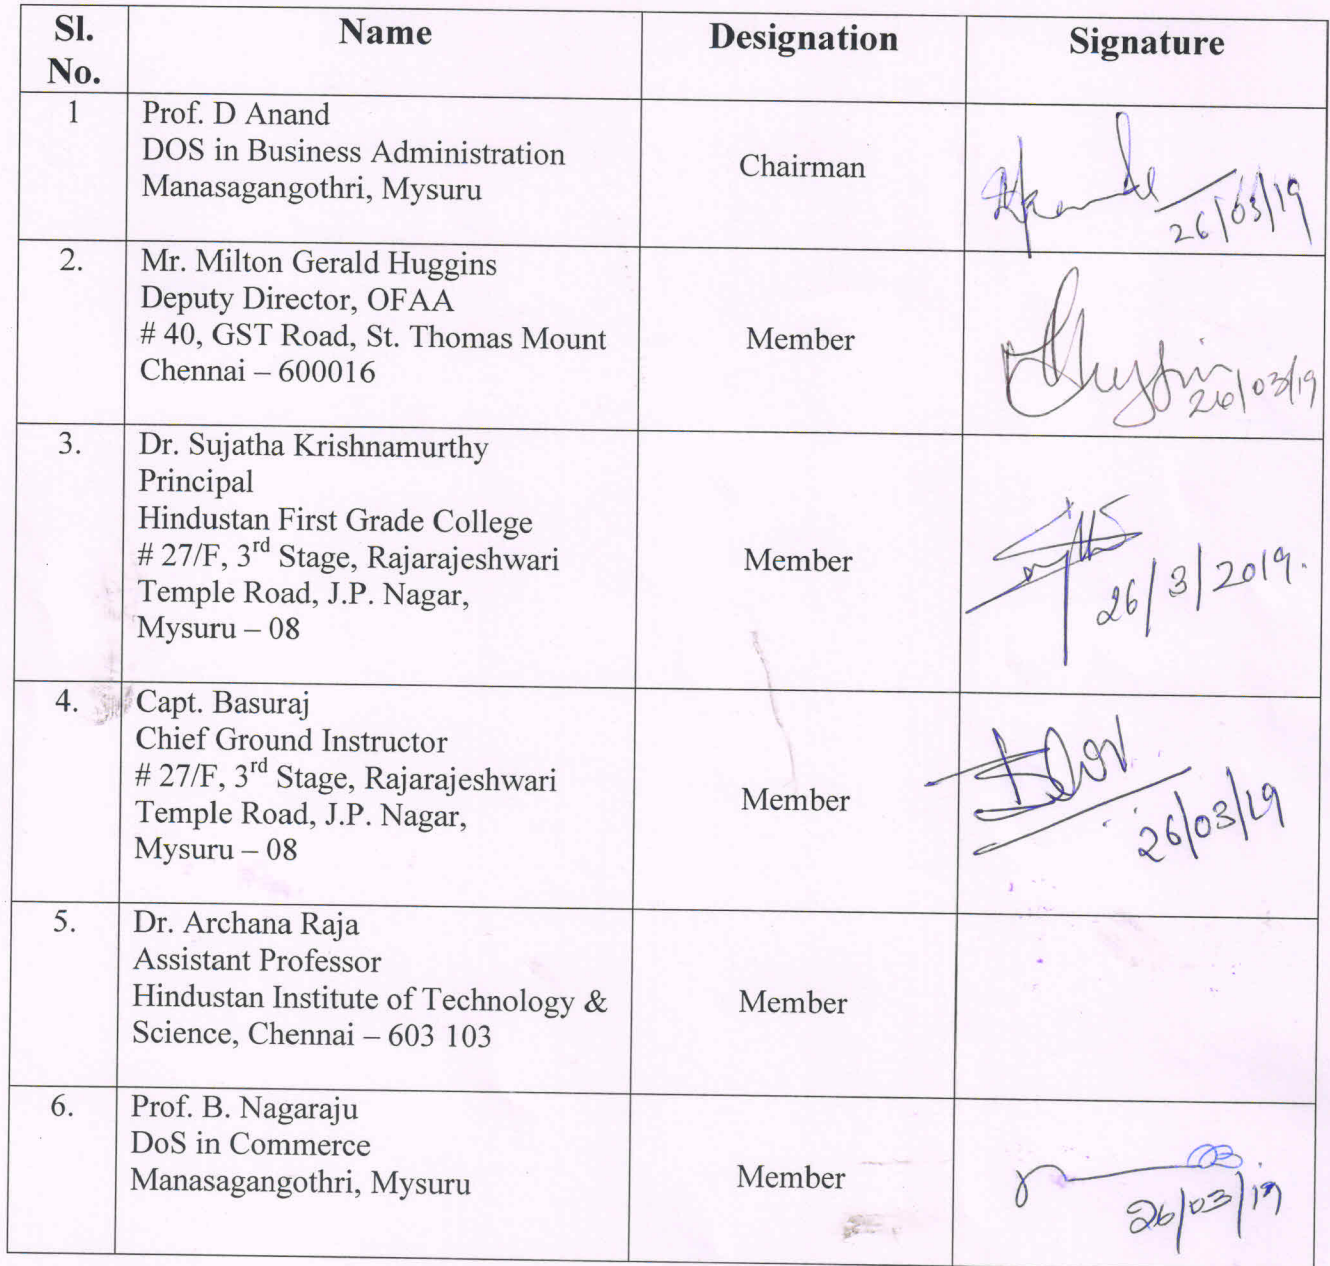 Sl. No.
Name
Designation
Signature
1
Prof. D Anand
DOS in Business Administration
Manasagangothri, Mysuru
Chairman
26/03/19
2.
Mr. Milton Gerald Huggins
Deputy Director, OFAA
# 40, GST Road, St. Thomas Mount
Chennai – 600016
Member
26/03/19
3.
Dr. Sujatha Krishnamurthy
Principal
Hindustan First Grade College
# 27/F, 3rd Stage, Rajarajeshwari
Temple Road, J.P. Nagar,
Mysuru – 08
Member
26/3/2019.
4.
Capt. Basuraj
Chief Ground Instructor
# 27/F, 3rd Stage, Rajarajeshwari
Temple Road, J.P. Nagar,
Mysuru – 08
Member
26/03/19
5.
Dr. Archana Raja
Assistant Professor
Hindustan Institute of Technology &
Science, Chennai – 603 103
Member
6.
Prof. B. Nagaraju
DoS in Commerce
Manasagangothri, Mysuru
Member
26/03/19